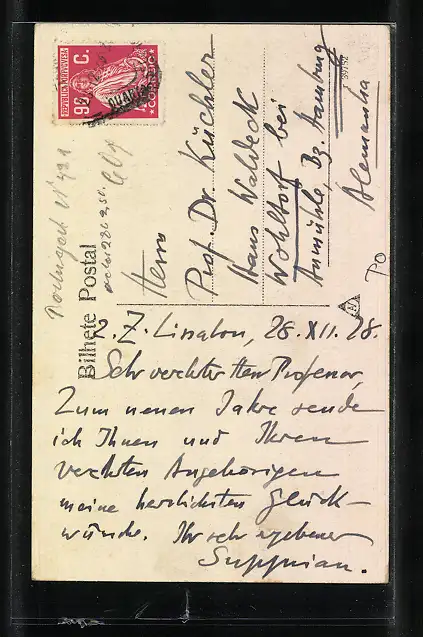 REPUBLICA PORTUGUESA
96 C.
CORREIO
Bilhete Postal
Herrn
Prof. Dr. Küchler
Haus Waldeck
Wohltorf bei
Aumühle, Bz. Hamburg
Alemanha
PO
z. Z. Lissabon, 28.XII.28.
Sehr verehrter Herr Professor,
Zum neuen Jahre sende
ich Ihnen und Ihren
verehrten Angehörigen
meine herzlichsten Glück-
wünsche. Ihr sehr ergebener